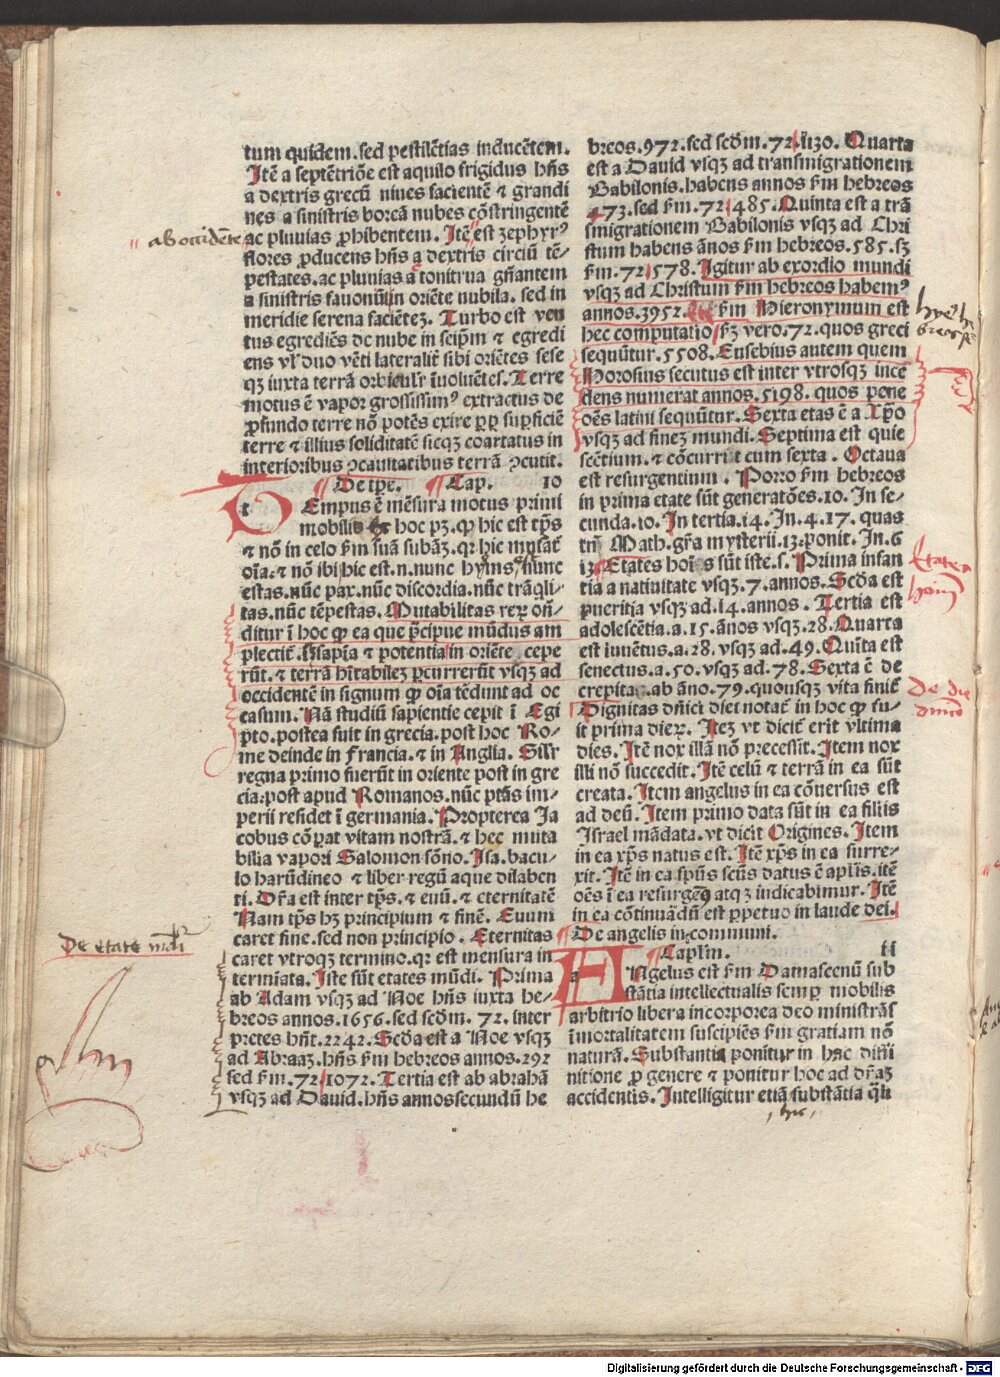 tum quidem. sed pestilētias inducētem.
Itē a septētriōe est aquilo frigidus hn̄s
a dextris grecū niues facientē ⁊ grandi
nes a sinistris boreā nubes cōstringentē
ac pluuias ꝓhibentem. Itē est zephyrꝰ
flores ꝓducens hn̄s a dextris circiū tē-
pestates. ac pluuias a tonitrua gn̄antem
a sinistris fauonūin oriēte nubila. sed in
meridie serena faciēteꝫ. Turbo est ven
tus egrediēs de nube in seip̄m ⁊ egredi
ens vl' duo vēti lateralit̄ sibi oriētes sese
qꝫ iuxta terrā orbiculr̄ īuoluētes. Terre
motus ē vapor grossissimꝰ extractus de
ꝓfundo terre nō potēs exire ꝓpꝑ suꝑficiē
terre ⁊ illius soliditatē sicqꝫ coartatus in
interioribus ꝯcauitatibus terrā ꝯcutit.
¶ De tp̄e. ¶ Cap. 10
TEmpus ē mēsura motus primi
mobilis hoc pꝫ. qꝫ hic est tp̄s
⁊ nō in celo fm̄ suā subāꝫ. qꝛ hic mutāt
oīa. ⁊ nō ibi hic est. n. nunc hyems, nunc
estas. nūc pax. nūc discordia. nūc trāqli-
tas. nūc tēpestas. Mutabilitas reꝝ on̄-
ditur ī hoc ꝙ ea que p̄cipue mūdus am
plectit̄. s. sapīa ⁊ potentia in oriēte cepe
rūt. ⁊ terrā hītabileꝫ ꝑcurrerūt vsqꝫ ad
occidentē in signum ꝙ oīa tēdunt ad oc
casum. Nā studiū sapientie cepit ī Egi
pto. postea fuit in grecia. post hoc Ro-
me deinde in Francia. ⁊ in Anglia. Sil'r
regna primo fuerūt in oriente post in gre
cia: post apud Romanos. nūc ptās im-
perii residet ī germania. Propterea Ja
cobus cōꝑat vitam nostrā. ⁊ hec muta
bilia vapori Salomon sōno. Isa. bacu-
lo harūdineo ⁊ liber regū aque dilaben
ti. Dr̄a est inter tp̄s. ⁊ euū. ⁊ eternitatē
Nam tp̄s hꝫ principium ⁊ finē. Euum
caret fine. sed non principio. Eternitas
caret vtroqꝫ termino. qꝛ est mensura in
termīata. Iste sūt etates mūdi. Prima
ab Adam vsqꝫ ad Noe hn̄s iuxta he-
breos annos. 1656. sed scd̄m. 72. inter
pretes hn̄t. 2242. Scd̄a est a Noe vsqꝫ
ad Abraaꝫ. hn̄s fm̄ hebreos annos. 292
sed fm̄. 72 1072. Tertia est ab abrahā
vsqꝫ ad Dauid. hn̄s annos secundū he
breos. 972. sed scd̄m. 72. i130. Quarta
est a Dauid vsqꝫ ad transmigrationem
Babilonis. habens annos fm̄ hebreos
473. sed fm̄. 72 485. Quinta est a trā
smigrationem Babilonis vsqꝫ ad Chri
stum habens ānos fm̄ hebreos. 585. sꝫ
fm̄. 72 578. Igitur ab exordio mundi
vsqꝫ ad Christum fm̄ hebreos habemꝰ
annos. 3952. fm̄ Hieronymum est
hec computatio sꝫ vero. 72. quos greci
sequūtur. 5508. Eusebius autem quem
Horosius secutus est inter vtrosqꝫ ince
dens numerat annos. 5198. quos pene
oēs latini sequūtur. Sexta etas ē a Xp̄o
vsqꝫ ad fineꝫ mundi. Septima est quie
scētium. ⁊ cōcurrit cum sexta. Octaua
est resurgentium. Porro fm̄ hebreos
in prima etate sūt generatōes. 10. In se-
cunda. 10. In tertia. 14. In. 4. 17. quas
tn̄ Math. gr̄a mysterii. 13. ponit. In. 6
13. Etates hoīs sūt iste. s. Prima infan
tia a natiuitate vsqꝫ. 7. annos. Scd̄a est
pueritia vsqꝫ ad. 14. annos. Tertia est
adolescētia. a. 15. ānos vsqꝫ. 28. Quarta
est iuuētus. a. 28. vsqꝫ ad. 49. Quīta est
senectus. a. 50. vsqꝫ ad. 78. Sexta ē de
crepitas. ab āno. 79. quousqꝫ vita finit̄
Dignitas dn̄ici diei notat̄ in hoc ꝙ fu-
it prima dieꝝ. Iteꝫ vt dicit̄ erit vltima
dies. Itē nox illā nō precessit. Item nox
illi nō succedit. Itē celū ⁊ terrā in ea sūt
creata. Item angelus in ea cōuersus est
ad deū. Item primo data sūt in ea filiis
Israel mādata. vt dicit Origines. Item
in ea xp̄s natus est. Itē xp̄s in ea surre-
xit. Itē in ea sp̄us scūs datus ē aplis. itē
oēs ī ea resurgēꝰ atqꝫ iudicabimur. Itē
in ea cōtinuādū est ꝑpetuo in laude dei.
¶ De angelis in cōmuni.
¶ Caplm̄. 11
ANgelus est fm̄ Damascenū sub
stātia intellectualis semꝑ mobilis
arbitrio libera incorporea deo ministrās
īmortalitatem suscipiēs fm̄ gratiam nō
naturā. Substantia ponitur in hac diffi
nitione ꝓ genere ⁊ ponitur hoc ad dr̄aꝫ
accidentis. Intelligitur etiā substātia q̄li
ab occidēte
De etate mūdi
Etates
hoīm
De die
dn̄ico
hic
Digitalisierung gefördert durch die Deutsche Forschungsgemeinschaft - DFG